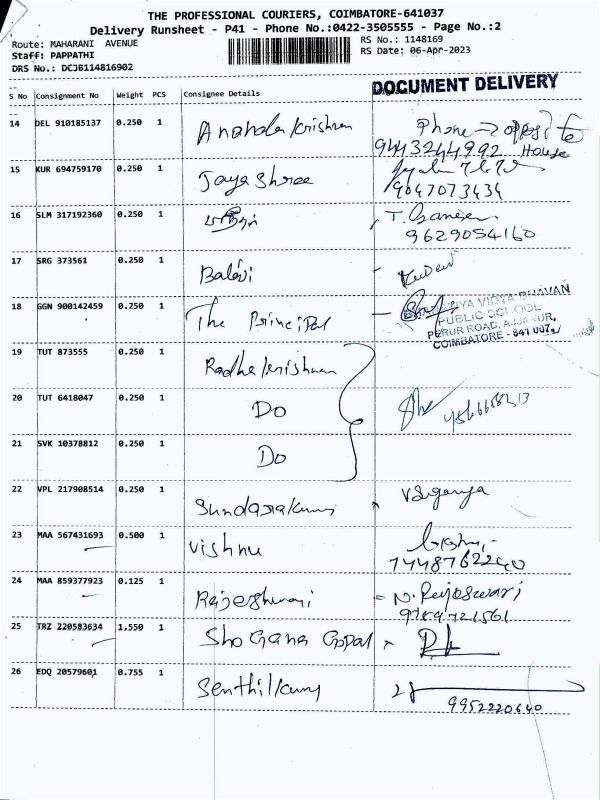 THE PROFESSIONAL COURIERS, COIMBATORE-641037
Delivery Runsheet - P41 - Phone No.:0422-3505555 - Page No.:2
Route: MAHARANI AVENUE
RS No.: 1148169
Staff: PAPPATHI
RS Date: 06-Apr-2023
DRS No.: DCJB114816902
DOCUMENT DELIVERY
S No Consignment No Weight PCS Consignee Details
14 DEL 910185137 0.250 1 Ananda krishnan Phone → oppsi to
9443244992 House
15 KUR 694759170 0.250 1 Jaya Shree
9047073434
16 SLM 317192360 0.250 1 T. Ganesan
9629054160
17 SRG 373561 0.250 1 Balaji
18 GGN 900142459 0.250 1 The Principal
VIDYA BHAVAN
PUBLIC SCHOOL
PERUR ROAD, AJJANUR,
COIMBATORE - 641 007
19 TUT 873555 0.250 1 Radha krishnan
20 TUT 6418047 0.250 1 Do
21 SVK 10378812 0.250 1 Do
22 VPL 217908514 0.250 1
23 MAA 567431693 0.500 1 Vishnu
7448762240
24 MAA 859377923 0.125 1 Rajeshwari N. Rajeswari
9789721561
25 TRZ 220583634 1.550 1 Shogana Gopal
26 EDQ 20579601 0.755 1 Senthilkumar
9952220640